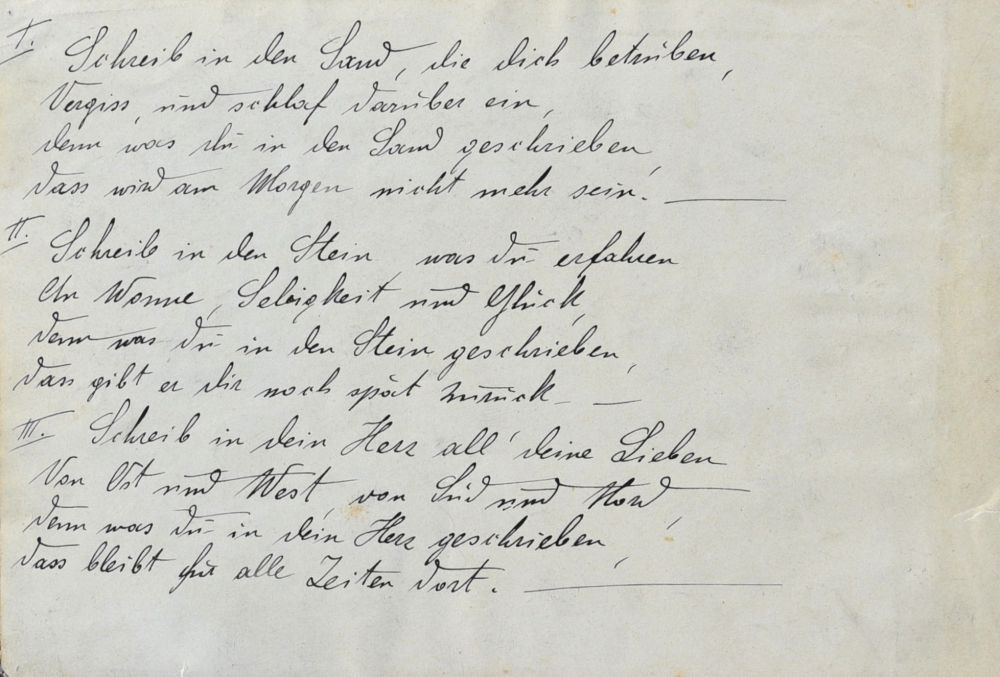 I. Schreib in den Sand, die dich betrüben,
Vergiss, und schlaf darüber ein,
denn was du in den Sand geschrieben,
dass wird am Morgen nicht mehr sein.
II. Schreib in den Stein, was du erfahren
An Wonne, Seligkeit und Glück,
denn was du in den Stein geschrieben,
dass gibt er dir noch spät zurück
III. Schreib in dein Herz all' deine Lieben
Von Ost und West, von Süd und Nord,
denn was du in dein Herz geschrieben,
dass bleibt für alle Zeiten dort.